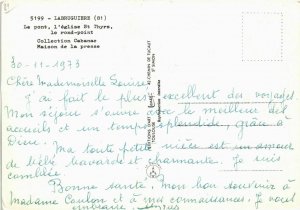 5199 - LABRUGUIERE (81)
Le pont, l'église St Thyrs,
le rond-point
Collection Cabanac
Maison de la presse
30-11-1973
Chère Mademoiselle Louise
J'ai fait le plus excellent des voyages
Mon séjour s'avère avec le meilleur des
accueils et un temps splendide, grâce à
Dieu. Ma toute petite nièce est un amour
de bébé bavarde et charmante. Je suis
comblée.
Bonne santé. Mon bon souvenir à
Madame Coulon et à mes connaissances. Je vous
embrasse